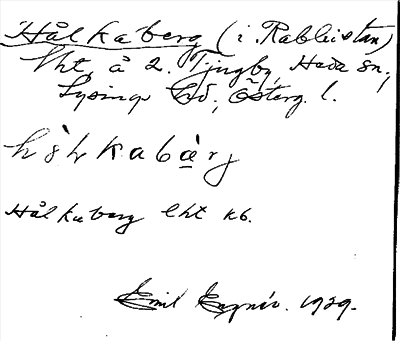 Hålkaberg (i Rableistan)
lht å 2. Tjugby, Heda sn,
Lysings hd, Österg. l.
hò̀l kabæ̀rj
Hålkaberg lht kb.
Emil 1929.